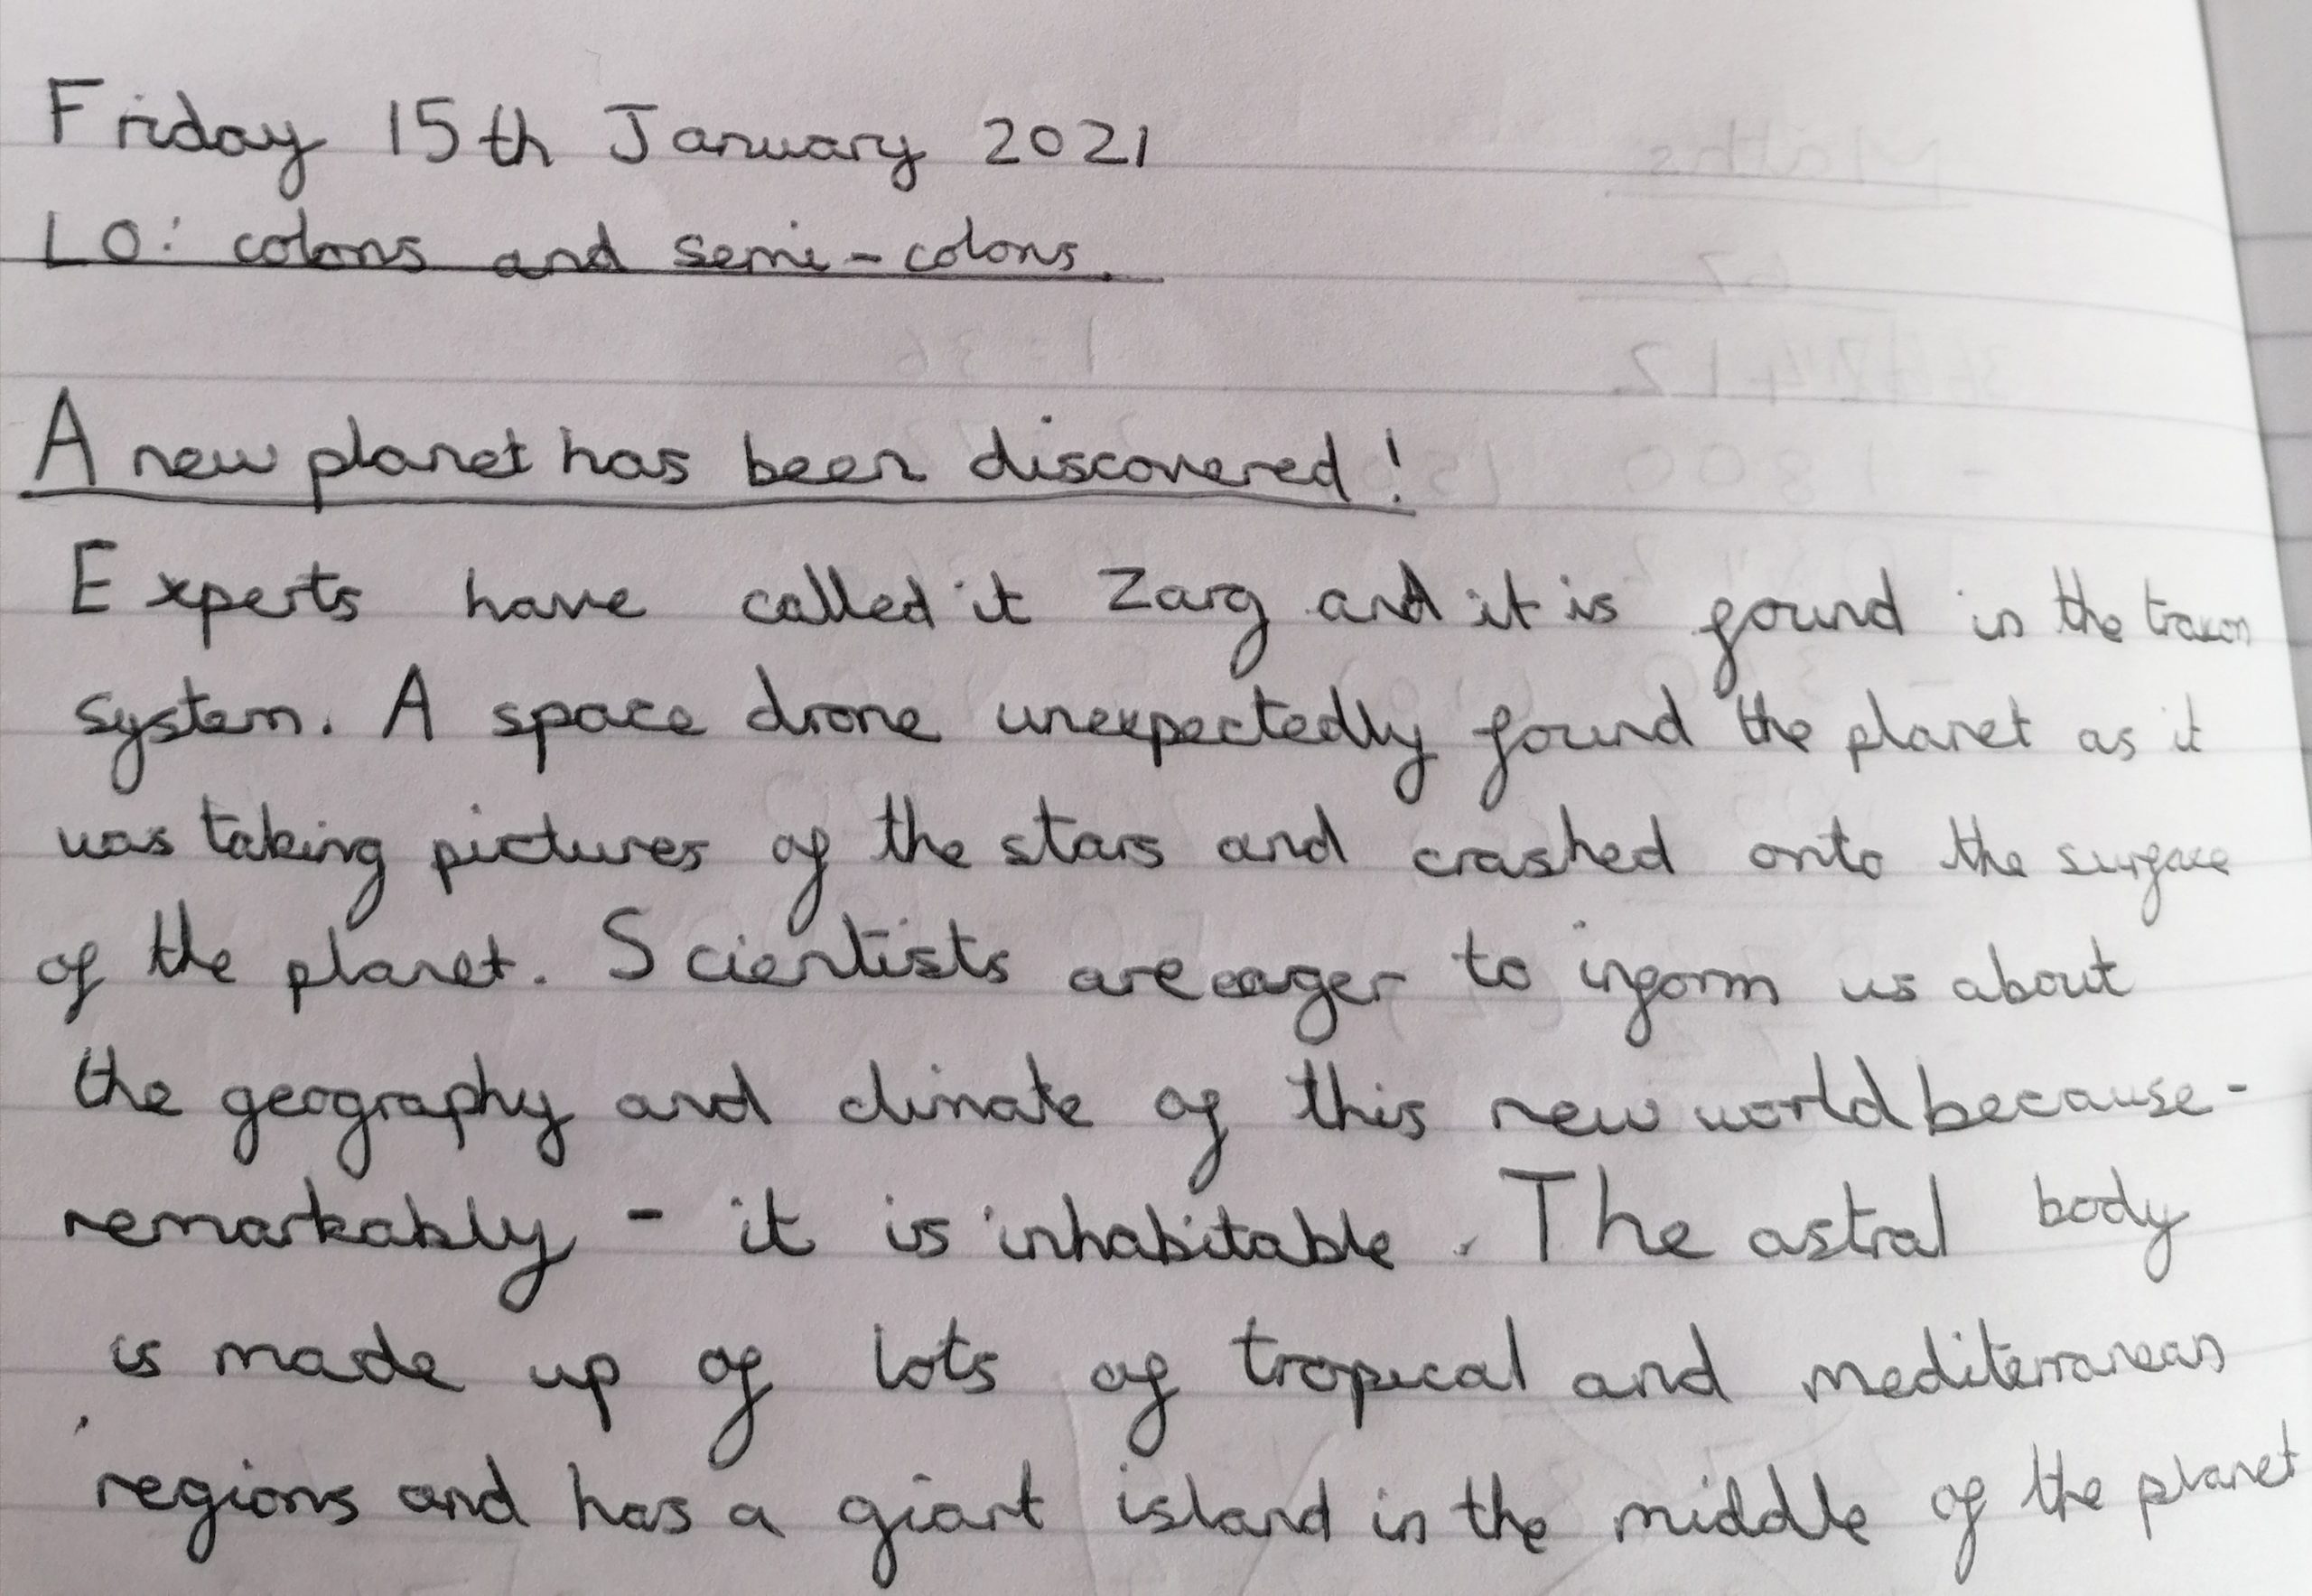 Friday 15th January 2021
LO: colons and semi-colons.
A new planet has been discovered!
Experts have called it Zarg and it is found in the
system. A space drone unexpectedly found the planet as it
was taking pictures of the stars and crashed onto the surface
of the planet. Scientists are eager to inform us about
the geography and climate of this new world because -
remarkably - it is inhabitable. The astral body
is made up of lots of tropical and mediterranean
regions and has a giant island in the middle of the planet